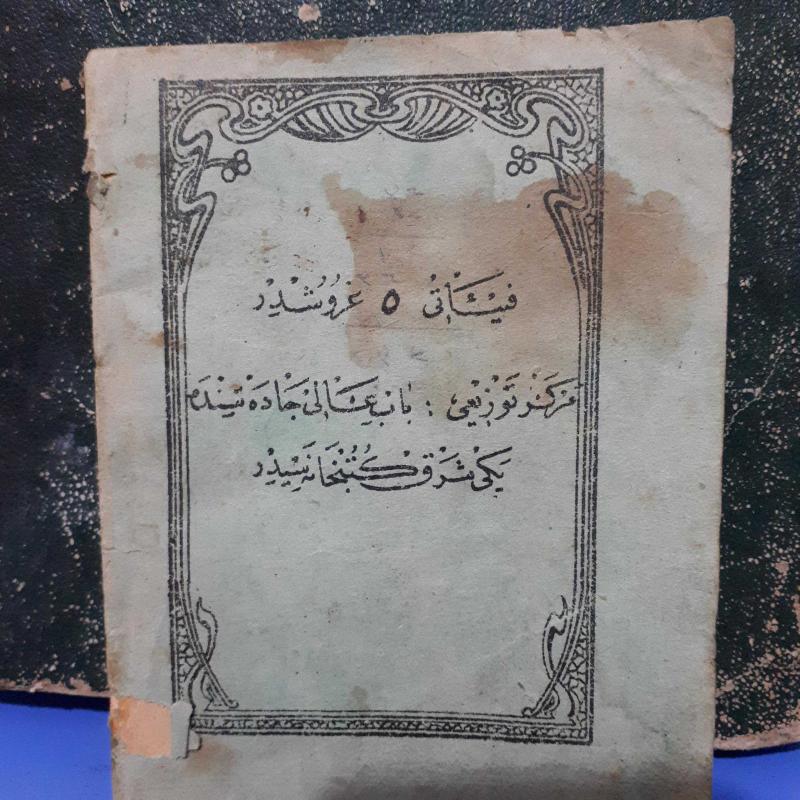 فيئاتى ٥ غروشدر
مركز توزيعى : باب عالى جاده سنده
يكى شرق كتبخانه سيدر